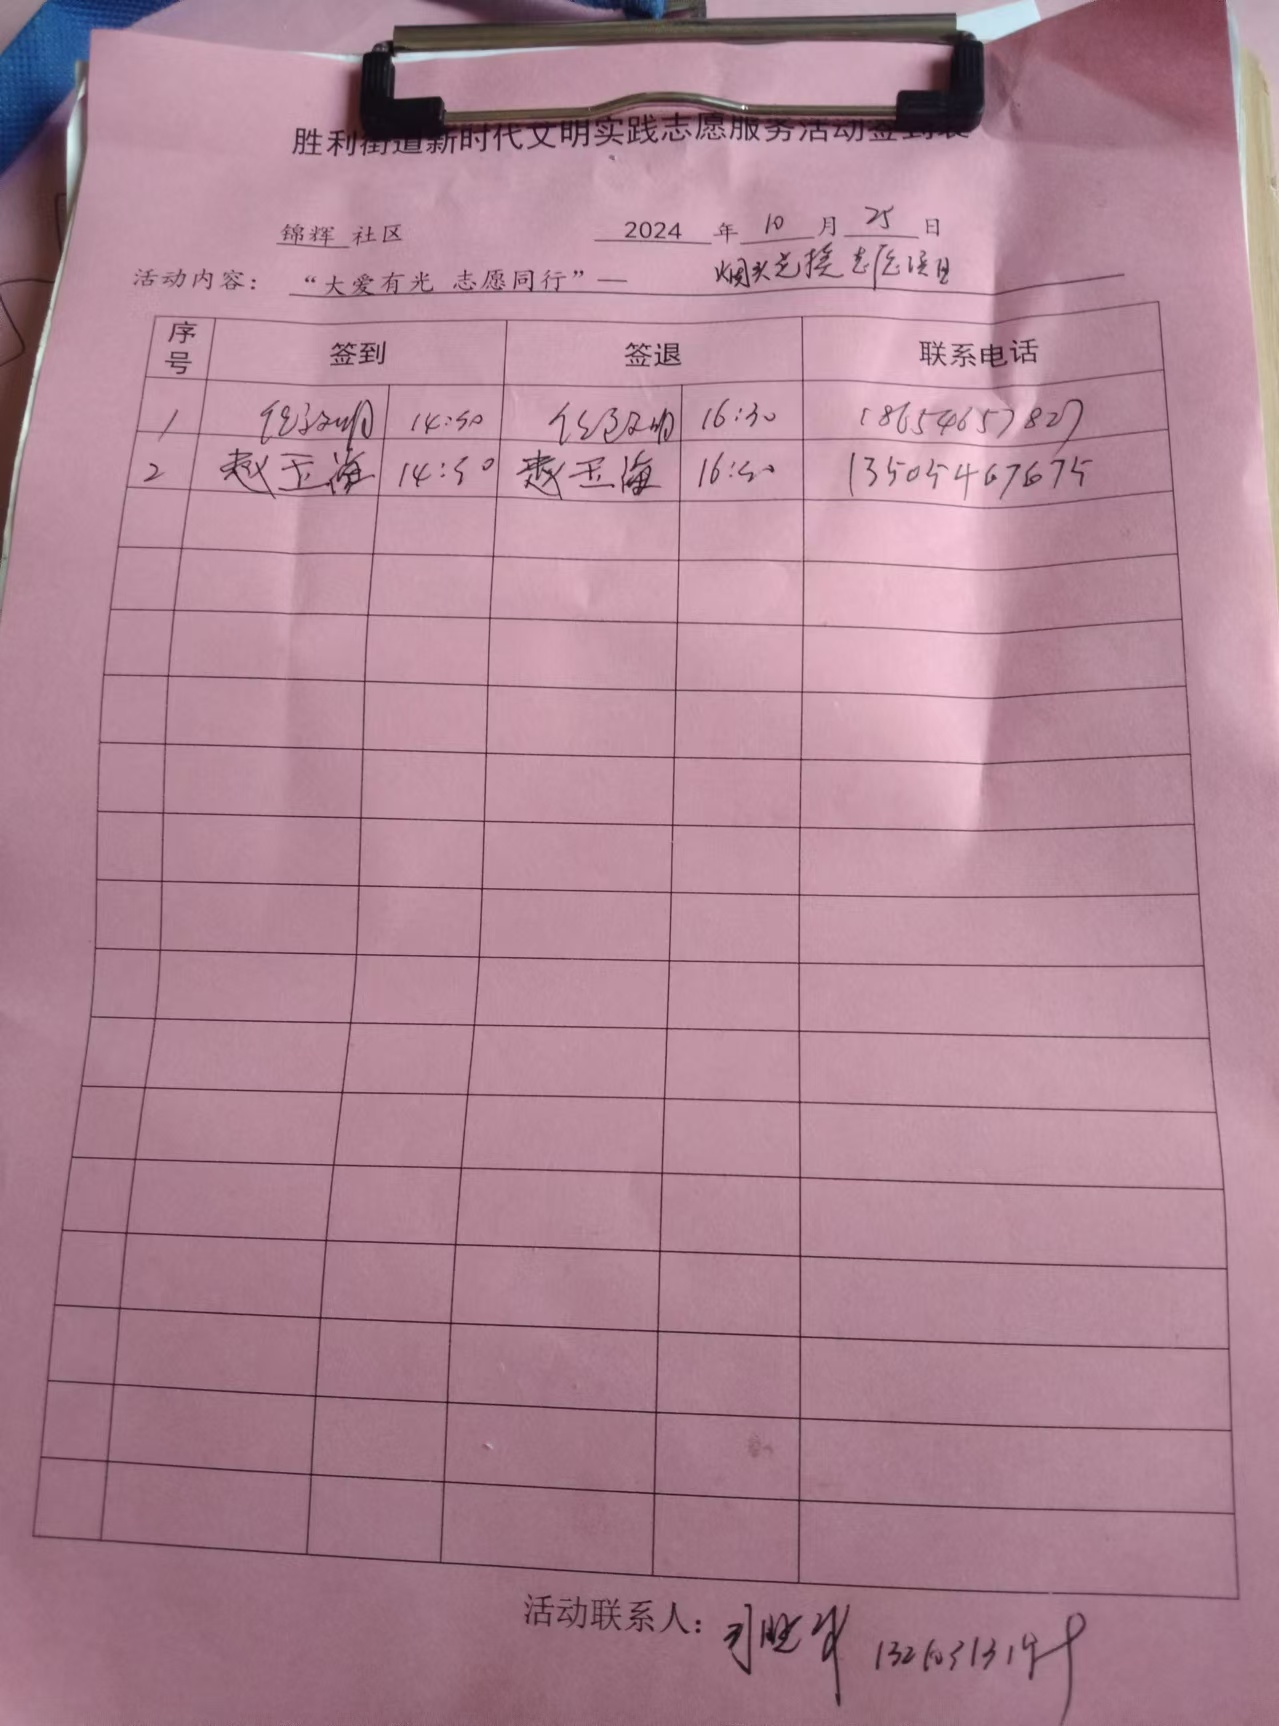 胜利街道新时代文明实践志愿服务活动签到表
锦辉 社区 2024 年 10 月 25 日
活动内容： “大爱有光 志愿同行”— 烟头兑换志愿项目
序号 签到 签退 联系电话
1 14:50 16:30 18654657827
2 赵玉海 14:50 赵玉海 16:50 13505467675
活动联系人：